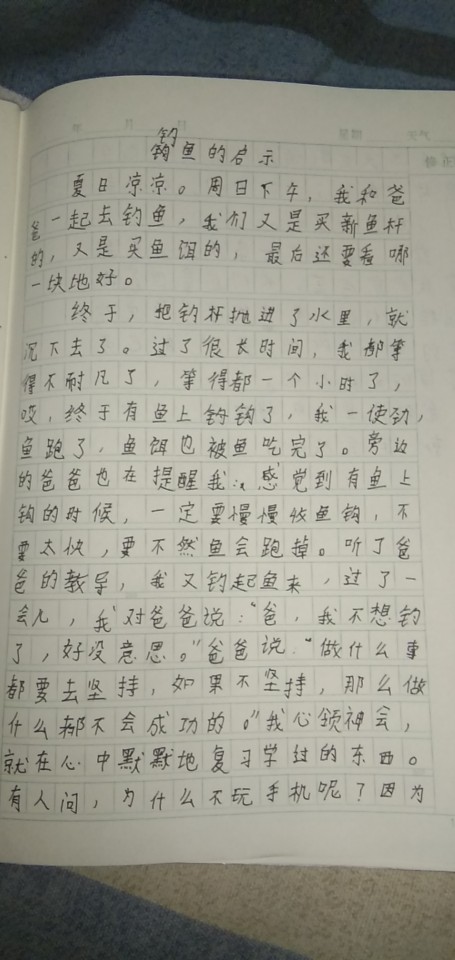 钓
钩鱼的启示
夏日凉凉。周日下午，我和爸
爸一起去钓鱼，我们又是买新鱼杆
的，又是买鱼饵的，最后还要看哪
一块地好。
终于，把钓杆抛进了水里，就
沉下去了。过了很长时间，我都等
得不耐凡了，等得都一个小时了，
哎，终于有鱼上钩了，我一使劲，
鱼跑了，鱼饵也被鱼吃完了。旁边
的爸爸也在提醒我：感觉到有鱼上
钩的时候，一定要慢慢收鱼钩，不
要太快，要不然鱼会跑掉。听了爸
爸的教导，我又钓起鱼来，过了一
会儿，我对爸爸说："爸，我不想钓
了，好没意思。"爸爸说："做什么事
都要去坚持，如果不坚持，那么做
什么都不会成功的。"我心领神会，
就在心中默默地复习学过的东西。
有人问，为什么不玩手机呢？因为